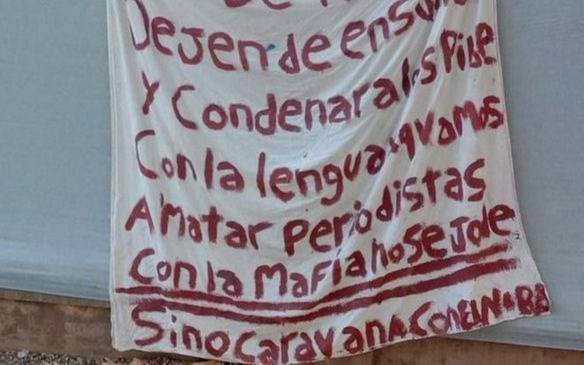 Dejen de ensu
y Condenar a los Pibe
Con la lengua
A Matar periodistas
Con la Mafia no se Jode
Sino Caravana